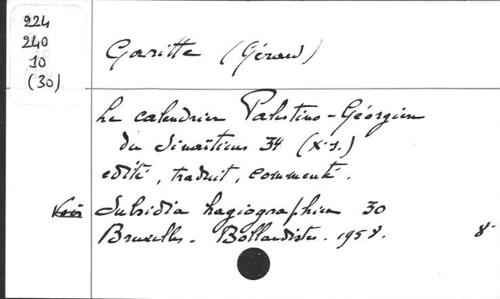 224
240
10
(30)
Garitte (Gérard)
Le calendrier Palestino-Géorgien
du Sinaiticus 34 (Xe s.)
edité, traduit, commenté.
Voir Subsidia hagiographica 30
Bruxelles. Bollandistes. 1958. 8°